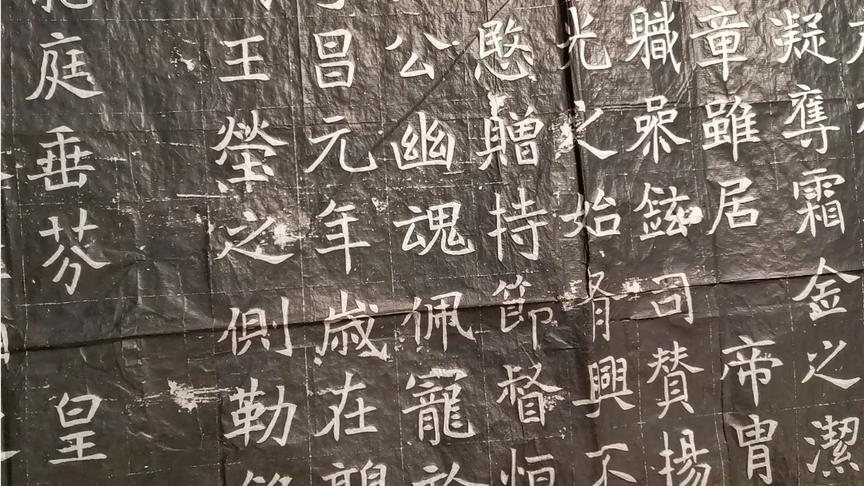 凝奪霜金之潔
章雖居 帝胄
職鉉司贊揚
光之始興不
愍贈持節督恒
公幽魂佩寵於
昌元年歲在鶉
王塋之側勒
庭垂芬 皇